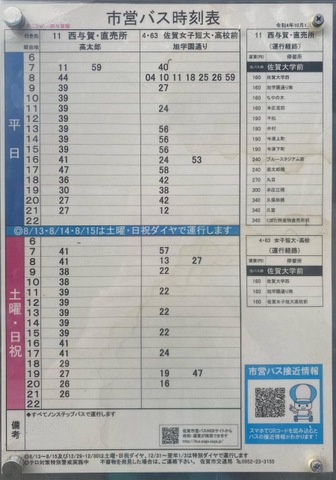 市営バス時刻表
令和4年10月1
行き先 11 西与賀・直売所 4・63 佐賀女子短大・高校前
経由地 高太郎 旭学園通り
平日
6
7 11 59 40
8 44 04 10 11 18 25 26 59
9 39 27
10 39
11 39
12 39
13 39 56
14 39 56
15 39 56
16 41 24 53
17 47 58
18 36 42
19 30 38
20 41 42
21 27 12
22
◎8/13・8/14・8/15は土曜・日祝ダイヤで運行します
土曜・日祝
6
7 41 57
8 41 13 27
9 38 22
10 38 22
11 39 22
12 39
13 39
14 39
15 39 22
16 39 22
17 41 24
18 39
19 29 19 47
20 26 16
21 26
22
備考
◆すべてノンステップバスで運行します
11 西与賀・直売所
(運行経路)
運賃(円) 停留所
佐賀大学前
160 佐賀大学西
160 旭学園通り東
160 中村
160 本庄
240 ブルースタジアム前
240 高太郎橋
270 丸目
300 本庄江橋
340 久保田橋
340 元相
4・63 女子短大・高校
(運行経路)
運賃(円) 停留所
佐賀大学前
160 佐賀大学西
160 旭学園通り東
160 佐賀女子短大高校前
市営バス接近情報
スマホでQRコードを読み込むと
バスの接近情報がわかります!
◎8/13~8/15及び12/29~12/30は土曜・日祝ダイヤ、12/31~翌年1/3は特別ダイヤで運行します。
◎テロ対策特別警戒実施中 不審物を発見した場合は、ご連絡下さい。 佐賀市交通局 ℡0952-23-3155